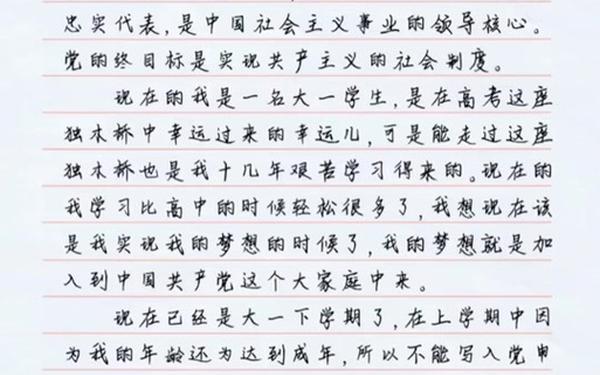 忠实代表,是中国社会主义事业的领导核心。
党的终目标是实现共产主义的社会制度。
现在的我是一名大一学生,是在高考这座
独木桥中幸运过来的幸运儿,可是能走过这座
独木桥也是我十几年艰苦学习得来的。现在的
我学习比高中的时候轻松很多了,我想现在该
是我实现我的梦想的时候了,我的梦想就是加
入到中国共产党这个大家庭中来。
现在已经是大一下学期了,在上学期中因
为我的年龄还为达到成年,所以不能写入党申